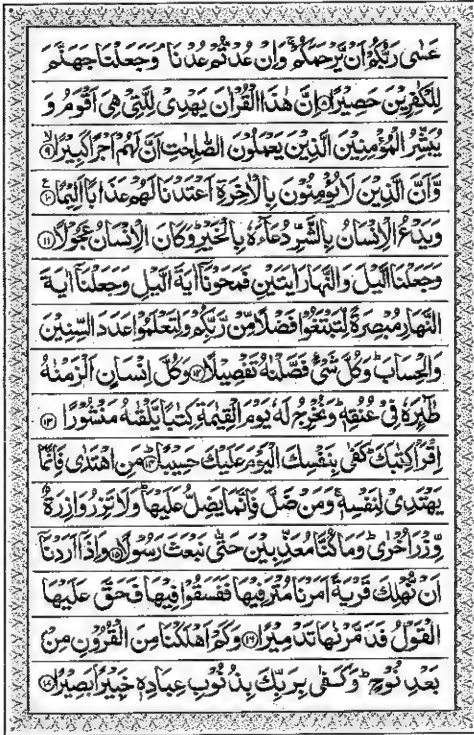 عَسٰى رَبُّكُمْ اَنْ يَّرْحَمَكُمْ ۚ وَاِنْ عُدْتُّمْ عُدْنَا ۘ وَجَعَلْنَا جَهَنَّمَ
لِلْكٰفِرِيْنَ حَصِيْرًا ۝۸ اِنَّ هٰذَا الْقُرْاٰنَ يَهْدِيْ لِلَّتِيْ هِيَ اَقْوَمُ وَ
يُبَشِّرُ الْمُؤْمِنِيْنَ الَّذِيْنَ يَعْمَلُوْنَ الصّٰلِحٰتِ اَنَّ لَهُمْ اَجْرًا كَبِيْرًا ۝۹
وَّاَنَّ الَّذِيْنَ لَا يُؤْمِنُوْنَ بِالْاٰخِرَةِ اَعْتَدْنَا لَهُمْ عَذَابًا اَلِيْمًا ۝۱۰
وَيَدْعُ الْاِنْسَانُ بِالشَّرِّ دُعَآءَهٗ بِالْخَيْرِ ؕ وَكَانَ الْاِنْسَانُ عَجُوْلًا ۝۱۱
وَجَعَلْنَا الَّيْلَ وَالنَّهَارَ اٰيَتَيْنِ فَمَحَوْنَاۤ اٰيَةَ الَّيْلِ وَجَعَلْنَاۤ اٰيَةَ
النَّهَارِ مُبْصِرَةً لِّتَبْتَغُوْا فَضْلًا مِّنْ رَّبِّكُمْ وَلِتَعْلَمُوْا عَدَدَ السِّنِيْنَ
وَالْحِسَابَ ؕ وَكُلَّ شَيْءٍ فَصَّلْنٰهُ تَفْصِيْلًا ۝۱۲ وَكُلَّ اِنْسَانٍ اَلْزَمْنٰهُ
طٰٓئِرَهٗ فِيْ عُنُقِهٖ ؕ وَنُخْرِجُ لَهٗ يَوْمَ الْقِيٰمَةِ كِتٰبًا يَّلْقٰىهُ مَنْشُوْرًا ۝۱۳
اِقْرَاْ كِتٰبَكَ ؕ كَفٰى بِنَفْسِكَ الْيَوْمَ عَلَيْكَ حَسِيْبًا ۝۱۴ مَنِ اهْتَدٰى فَاِنَّمَا
يَهْتَدِيْ لِنَفْسِهٖ ۚ وَمَنْ ضَلَّ فَاِنَّمَا يَضِلُّ عَلَيْهَا ؕ وَلَا تَزِرُ وَازِرَةٌ
وِّزْرَ اُخْرٰى ؕ وَمَا كُنَّا مُعَذِّبِيْنَ حَتّٰى نَبْعَثَ رَسُوْلًا ۝۱۵ وَاِذَاۤ اَرَدْنَاۤ
اَنْ نُّهْلِكَ قَرْيَةً اَمَرْنَا مُتْرَفِيْهَا فَفَسَقُوْا فِيْهَا فَحَقَّ عَلَيْهَا
الْقَوْلُ فَدَمَّرْنٰهَا تَدْمِيْرًا ۝۱۶ وَكَمْ اَهْلَكْنَا مِنَ الْقُرُوْنِ مِنْۢ
بَعْدِ نُوْحٍ ؕ وَكَفٰى بِرَبِّكَ بِذُنُوْبِ عِبَادِهٖ خَبِيْرًۢا بَصِيْرًا ۝۱۷